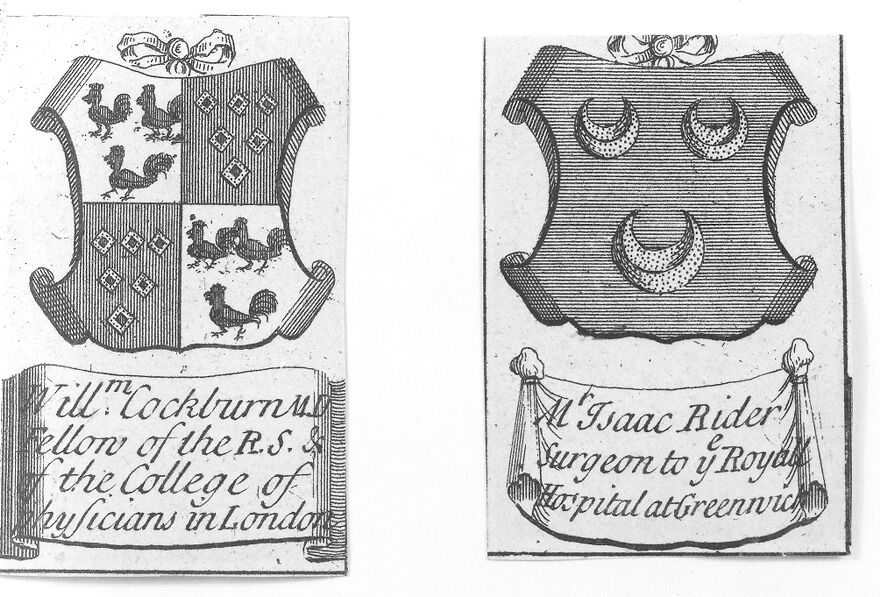 Will.m Cockburn M.D
Fellow of the R.S. &
of the College of
Phyſicians in London
Mr Isaac Rider
Surgeon to ye Royall
Hospital at Greenwich